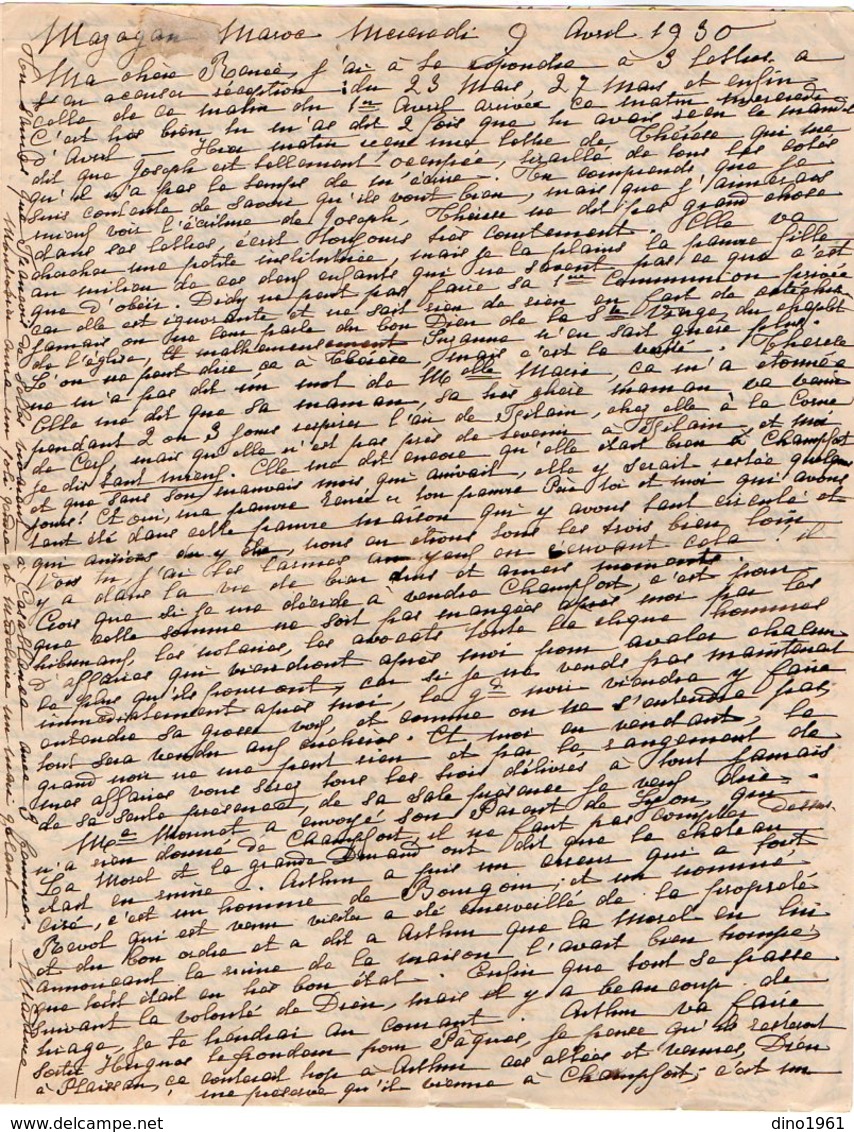 Mazagan Maroc Mercredi 9 Avril 1930
Ma chère Renée, j'ai à te répondre à 3 lettres, a
t'en accuser réception : du 23 Mars, 27 Mars et enfin
celle de ce matin du 1er Avril arrivée ce matin mercredi
C'est très bien tu m'as dit 2 fois que tu avais reçu le mandat
d'Avril — Hier matin reçu une lettre de Thérèse qui me
dit que Joseph est tellement occupé, tiraillé de tous les cotés
qu'il n'a pas le temps de m'écrire. Tu comprends que je
suis contente de savoir qu'ils vont bien, mais que j'aimerais
mieux voir l'écriture de Joseph, Thérèse ne dit pas grand chose
dans ses lettres, écrit toujours très courtement. Elle va
chercher une petite institutrice, mais je la plains la pauvre fille
au milieu de ces deux enfants qui ne savent pas ce que c'est
que d'obéir. Didy ne peut pas faire sa 1ère Communion privée
car elle est ignorante et ne sait rien de rien en fait de catéchisme
jamais on ne leur parle du bon Dieu de la Ste Vierge, du chapelet
de l'église, Et malheureusement Suzanne n'en sait guère plus.
L'on ne peut dire ça à Thérèse, mais c'est la vérité. Thérèse
ne m'a pas dit un mot de Melle Marie, ça m'a étonnée
Elle me dit que sa maman, sa très chère maman va venir
pendant 2 ou 3 jours respirer l'air de chez elle à la Corne
de Cerf, mais qu'elle n'est pas près de revenir à et moi
je dis tant mieux. Elle me dit encore qu'elle était bien à Champfort
et que sans son mauvais mois qui arrivait, elle y serait restée quelques
jours! Et oui, ma pauvre Renée ton pauvre Père toi et moi qui avons
tant été dans cette pauvre maison qui y avons tant circulé et
qui aurions du y être, nous en étions tous les trois bien loin
Vois tu j'ai les larmes aux yeux en écrivant cela! il
y a dans la vie de bien durs et amers moments.
Crois que si je me décide à vendre Champfort, c'est pour
que cette somme ne soit pas mangée après moi par les
tribunaux, les notaires, les avocats toute la clique hommes
d'affaires qui viendront après moi pour avaler chacun
le plus qu'ils pourront, car si je ne vends pas maintenant
immédiatement après moi, la gde noire viendra y faire
entendre sa grosse voix, et comme on ne s'entendra pas
tout sera vendu aux enchères. Et moi en vendant, la
grand noir ne me peut rien et par le rangement de
mes affaires vous serez tous les trois délivrés à tout jamais
de sa seule présence, de sa sale présence je veux dire —
Ma Monnet a envoyé son Parent de Lyon, qui
n'a rien donné de Champfort, il ne faut pas compter dessus.
La Morel et la grande Durand ont dit que le chateau
était en ruine. Arthur a puis un qui a tout
ciré, c'est un homme de Bourgoin; et un nommé
Revol qui est venu visiter a été émerveillé de la propreté
et du bon ordre et a dit a Arthur que la Morel en lui
annonçant la ruine de la maison l'avait bien trompé,
que tout était en très bon état. Enfin que tout se passe
suivant la volonté de Dieu, mais il y a beaucoup de
tirage, je te tiendrai au courant. Arthur va faire
sortir Hugues pour Pâques, je pense qu'ils resteront
à Plaissan, ça couterait trop à Arthur ces allées et venues, Dieu
me préserve qu'il vienne à Champfort, c'est un
Tu sais que François de vivant à Casablanca avec 3 femmes, Madame
Montrobier aura un joli gendre et Madeleine un mari galant —
MyOriginalCover.com
dino1961